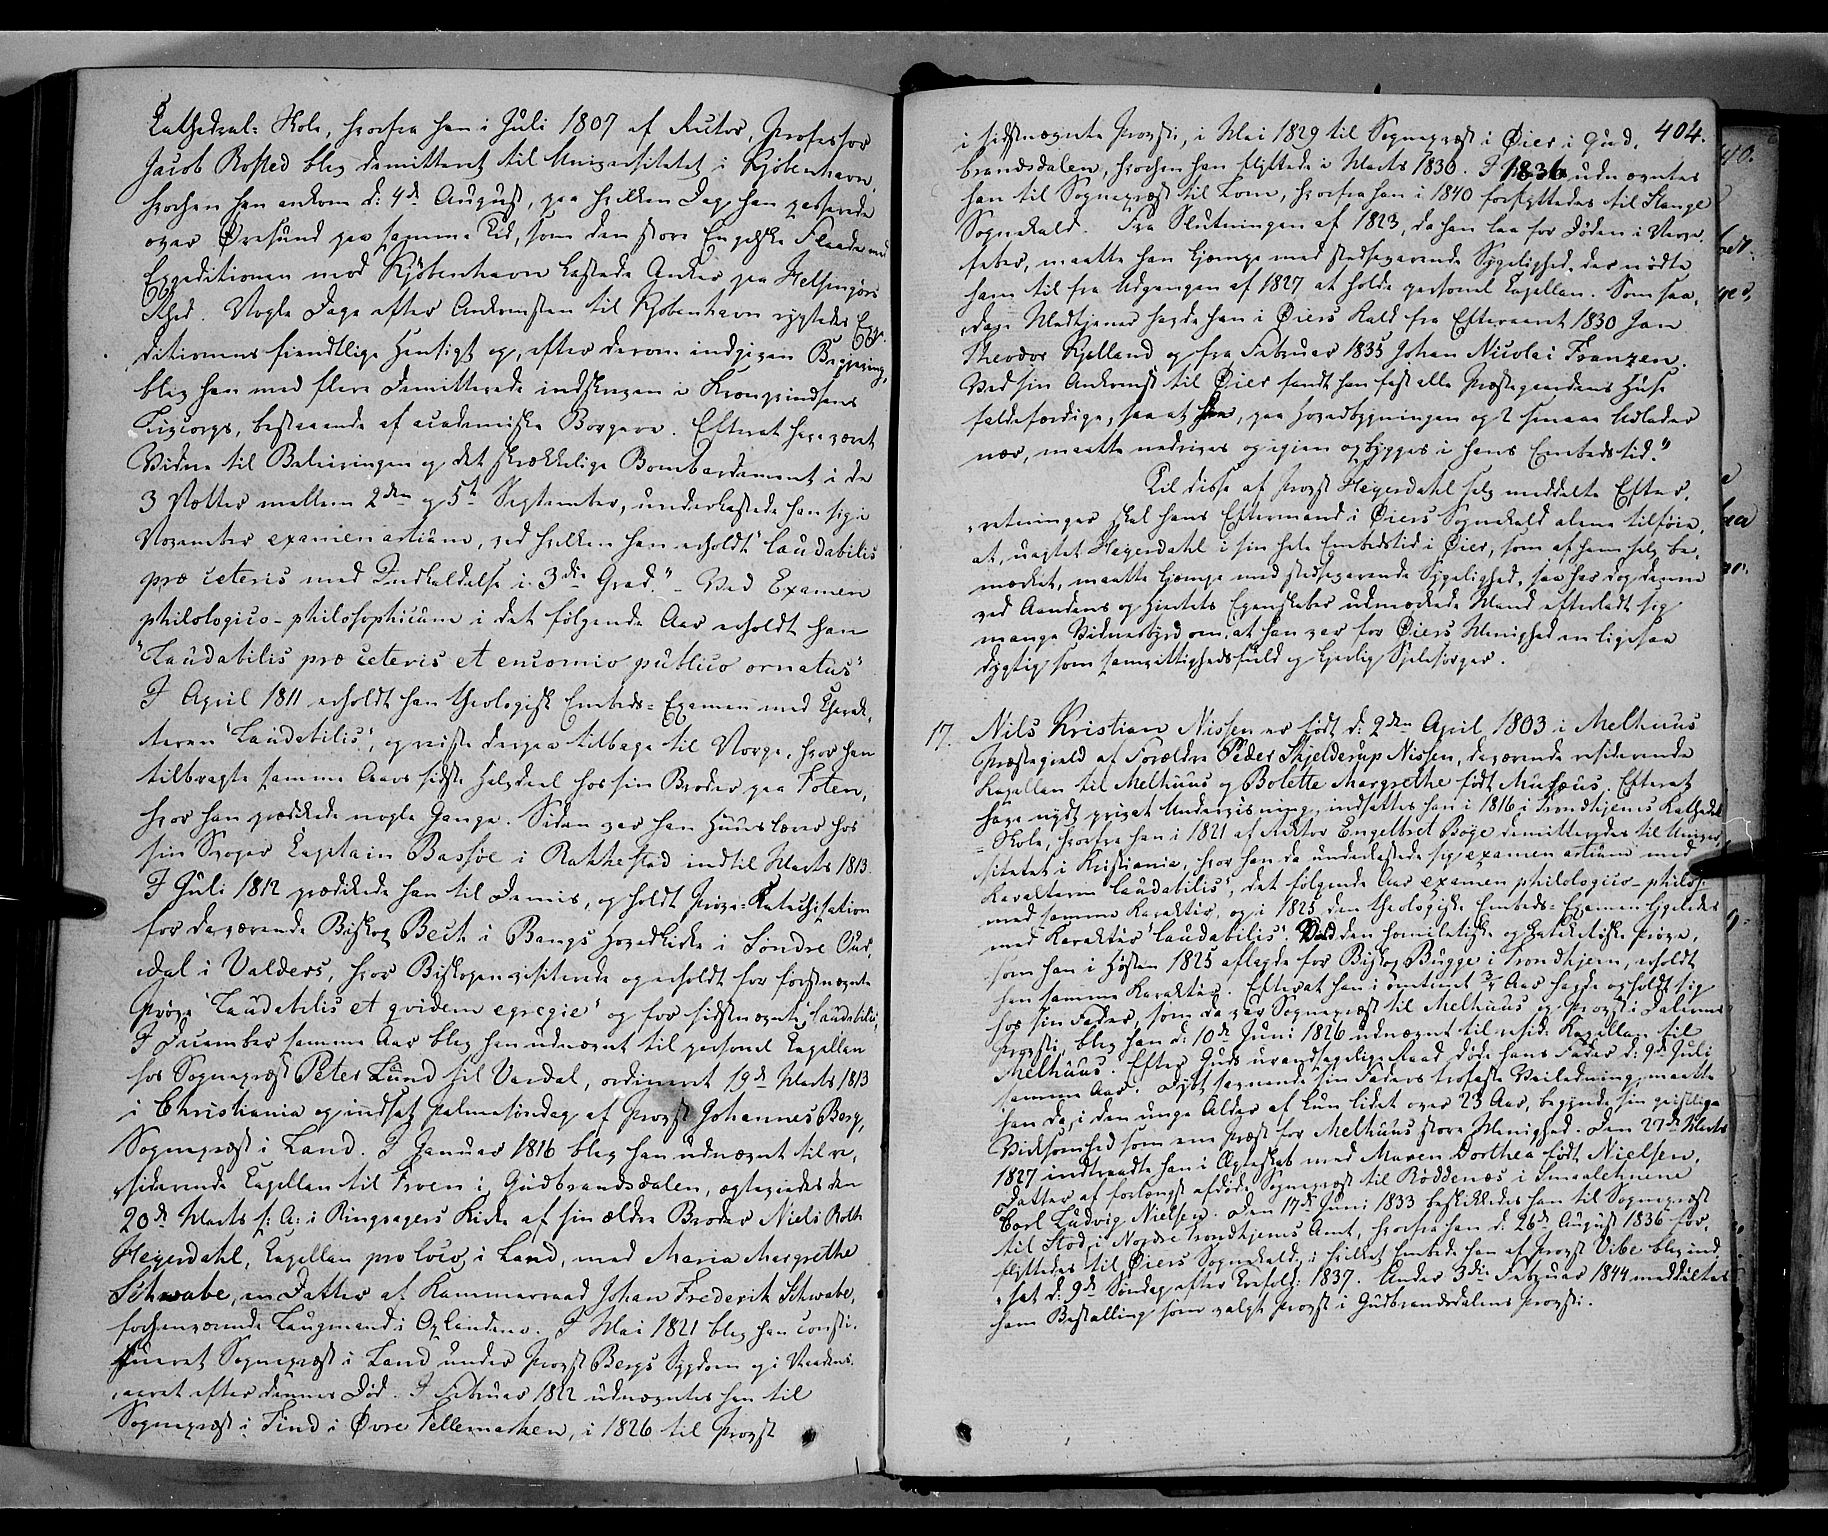 Cathedral-Skole, hvorfra han i Juli 1807 af Rector, Professor
Jacob Rosted blev demitteret til Universitetet i Kjöbenhavn,
hvorhen han ankom d: 4de August, paa hvilken Dag han passerede
over Øresund paa samme Tid, som den store Engelske Flaade med
Expeditionen mod Kjöbenhavn kastede Anker paa Helsingörs
Rhed. Nogle Dage efter Ankomsten til Kjöbenhavn rygtedes Expe-
ditionens fiendtlige Hensigt og, efter derom indgiven Begjæring,
blev han med flere Demitterede indskreven i Kronprindsens
Livcorps, bestaaende af academiske Borgere. Efterat have været
Vidne til Beleiringen og det skrækkelige Bombardement i de
3 Nætter mellem 2den og 5te September, underkastede han sig i
November examen artium, ved hvilken han erholdt "laudabilis
præ ceteris med Indkaldelse i 3die Grad." - Ved Examen
philologico-philosophicum i det følgende Aar erholdt han
"Laudabilis præ ceteris et encomio publico ornatus"
I April 1811 erholdt han theologisk Embeds-Examen med Charak-
teren "Laudabilis", og reiste derpaa tilbage til Norge, hvor han
tilbragte samme Aars sidste Halvdeel hos sin Broder paa Toten,
hvor han prædikede nogle Gange. Siden var han Huuslærer hos
sin Svoger Capitain Bassøe i Rakkestad indtil Marts 1813.
I Juli 1812 prædikede han til Demis, og holdt Prøve-Katechisation
for daværende Biskop Bech i Bangs Hovedkirke i Söndre Aur-
dal i Valders, hvor Biskopen visiterede og erholdt for førstnævnte
Prøve "Laudabilis et qvidem egregie" og for sidstnævnte "laudabilis".
I December samme Aar blev han udnævnt til personel Capellan
hos Sognepræst Peter Lund til Vardal, ordineret 19de Marts 1813
i Christiania og indsat Palmesöndag af Provst Johannes Berg,
Sognepræst i Land. I Januar 1816 blev han udnævnt til re-
siderende Capellan til Froen i Gudbrandsdalen, egteviedes den
20de Marts s: A: i Ringsagers Kirke af sin ældre Broder Niels Roth
Heyerdahl, Capellan pro loco i Land, med Maria Margrethe
Schwabe, en Datter af Kammerraad Johan Frederik Schwabe,
forhenværende Laugmand i Oplandene. I Mai 1821 blev han consti-
tueret Sognepræst i Land under Provst Bergs Sygdom og i Naadens-
aaret efter dennes Død. I Februar 1822 udnævntes han til
Sognepræst i Tind i Øvre Tellemarken, i 1826 til Provst
404.
i sidstnævnte Provsti, i Mai 1829 til Sognepræst i Øier i Gud-
brandsdalen, hvorhen han flyttede i Marts 1830. I 1836 udnævntes
han til Sognepræst til Lom, hvorfra han i 1840 forflyttedes til Stange
Sognekald. Fra Slutningen af 1823, da han laa for Døden i Nerve-
feber, maatte han kjæmpe med stedsevarende Sygelighed, der nödte
ham til fra Udgangen af 1827 at holde personel Capellan. Som saa-
dan Medtjener havde han i Øiers Kald fra Efteraaret 1830 Jan
Theodor Kjelland og fra Februar 1835 Johan Nicolai Franzen.
Ved sin Ankomst til Øier fandt han fast alle Præstegaardens Huse
faldefærdige, saa at , paa Hovedbygningen og 2 smaae Udlader
nær, maatte nedrives og igjen opbygges i hans Embedstid."
Til disse af Provst Heyerdahl selv meddelte Efter-
retninger skal hans Eftermand i Øiers Sognekald alene tilföie,
at, uagtet Heyerdahl i sin hele Embedstid i Øier, som af ham selv be-
mærket, maatte kjæmpe med stedsevarende Sygelighed, saa har dog denne
ved Aandens og Hjertets Egenskaber udmærkede Mand efterladt sig
mange Vidnesbyrd om, at han var for Øiers Menighed en ligesaa
dygtig som samvittighedsfuld og kjerlig Sjelesörger.
17. Nils Kristian Nissen er født d: 2den April 1803 i Melhuus
Præstegjeld af Forældre Peder Skjelderup Nissen, daværende residerende
Kapellan til Melhuus og Bolette Margrethe født Musæus. Efterat
have nydt privat Underviisning, indsattes han i 1816 i Trondhjems Kathedral
-Skole, hvorfra han i 1821 af Rektor Engelbret Böge demitteredes til Univer-
sitetet i Kristiania, hvor han da underkastede sig examen artium med
Karakteren "laudabilis", det følgende Aar examen philologico-philos-
med samme Karakter, og i 1825 den theologiske Embeds-Examen ligeledes
med Karakter "laudabilis". Ved den homiletiske og katketiske Prøve,
som han i Hösten 1825 aflagde for Biskop Bugge i Trondhjem, erholdt
han samme Karakter. Efterat han i omtrent 3/4 Aar havde opholdt sig
hos sin Fader, som da var Sognepræst til Melhuus og Provst i Dalernes
Provsti, blev han d: 10de Juni 1826 udnævnt til resid: Kapellan til
Melhuus. Efter Guds uransagelige Raad døde hans Fader d: 9de Juli
samme Aar. Dybt savnende sin Faders trofaste Veiledning, maatte
han da, i den unge Alder af kun lidet over 23 Aar, begynde sin geistlige
Virksomhed som ene Præst for Melhuus store Menighed. Den 27de Marts
1827 indtraadte han i Ægteskab med Maren Dorthea født Nielsen,
Datter af forlængst afdøde Sognepræst til Röddenæs i Smaalehnene
Carl Ludvig Nielsen. Den 17de Juni 1833 beskikkedes han til Sognepræst
til Stod i Nordre Trondhjems Amt, hvorfra han d: 26de August 1836 for-
flyttedes til Øiers Sognekald, i hvilket Embede han af Provst Vibe blev ind-
sat d: 9de Söndag efter Trefold: 1837. Under 3die Februar 1844 meddeeltes
ham Bestalling som valgt Provst i Gudbrandsdalens Provsti.